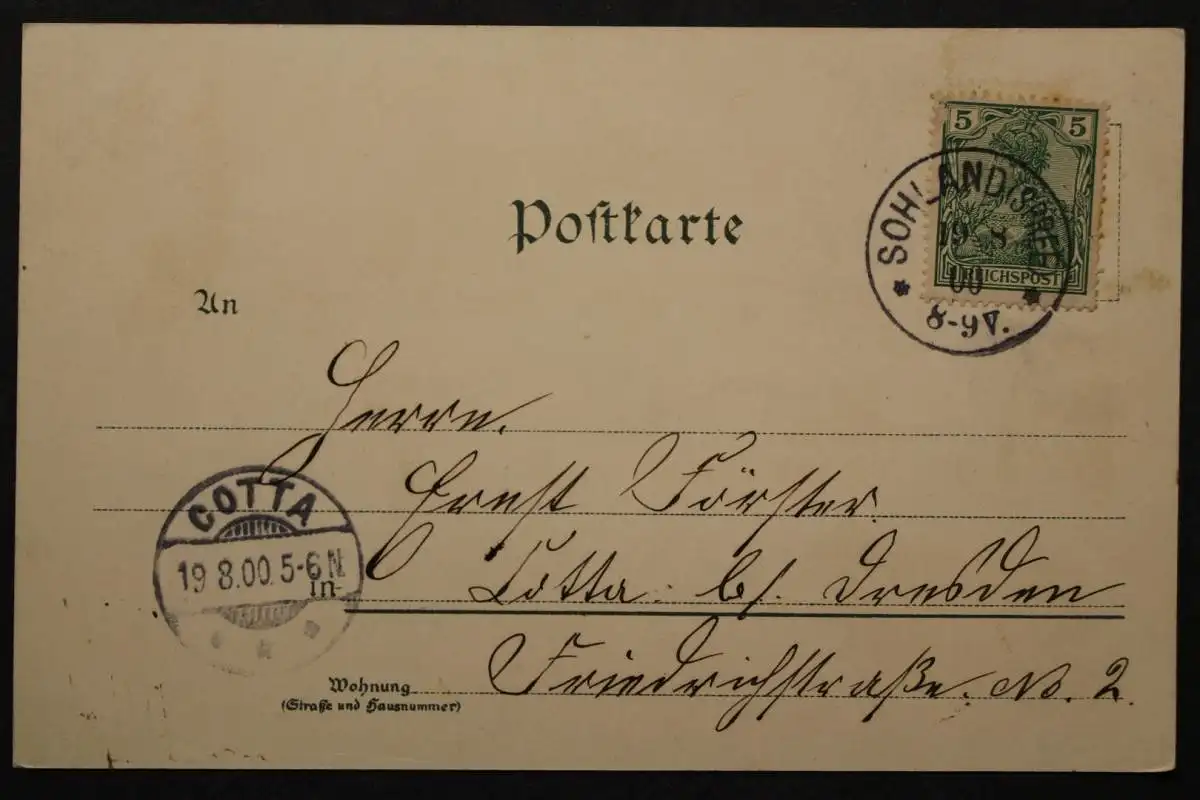 5 5
REICHSPOST
SOHLAND (SPREE)
19 8
00
8-9 V.
Postkarte
An
Herrn
Ernst Förster.
COTTA
19 8.00. 5-6 N
In
Cotta b/. Dresden
Friedrichstraße. No. 2.
Wohnung
(Straße und Hausnummer)